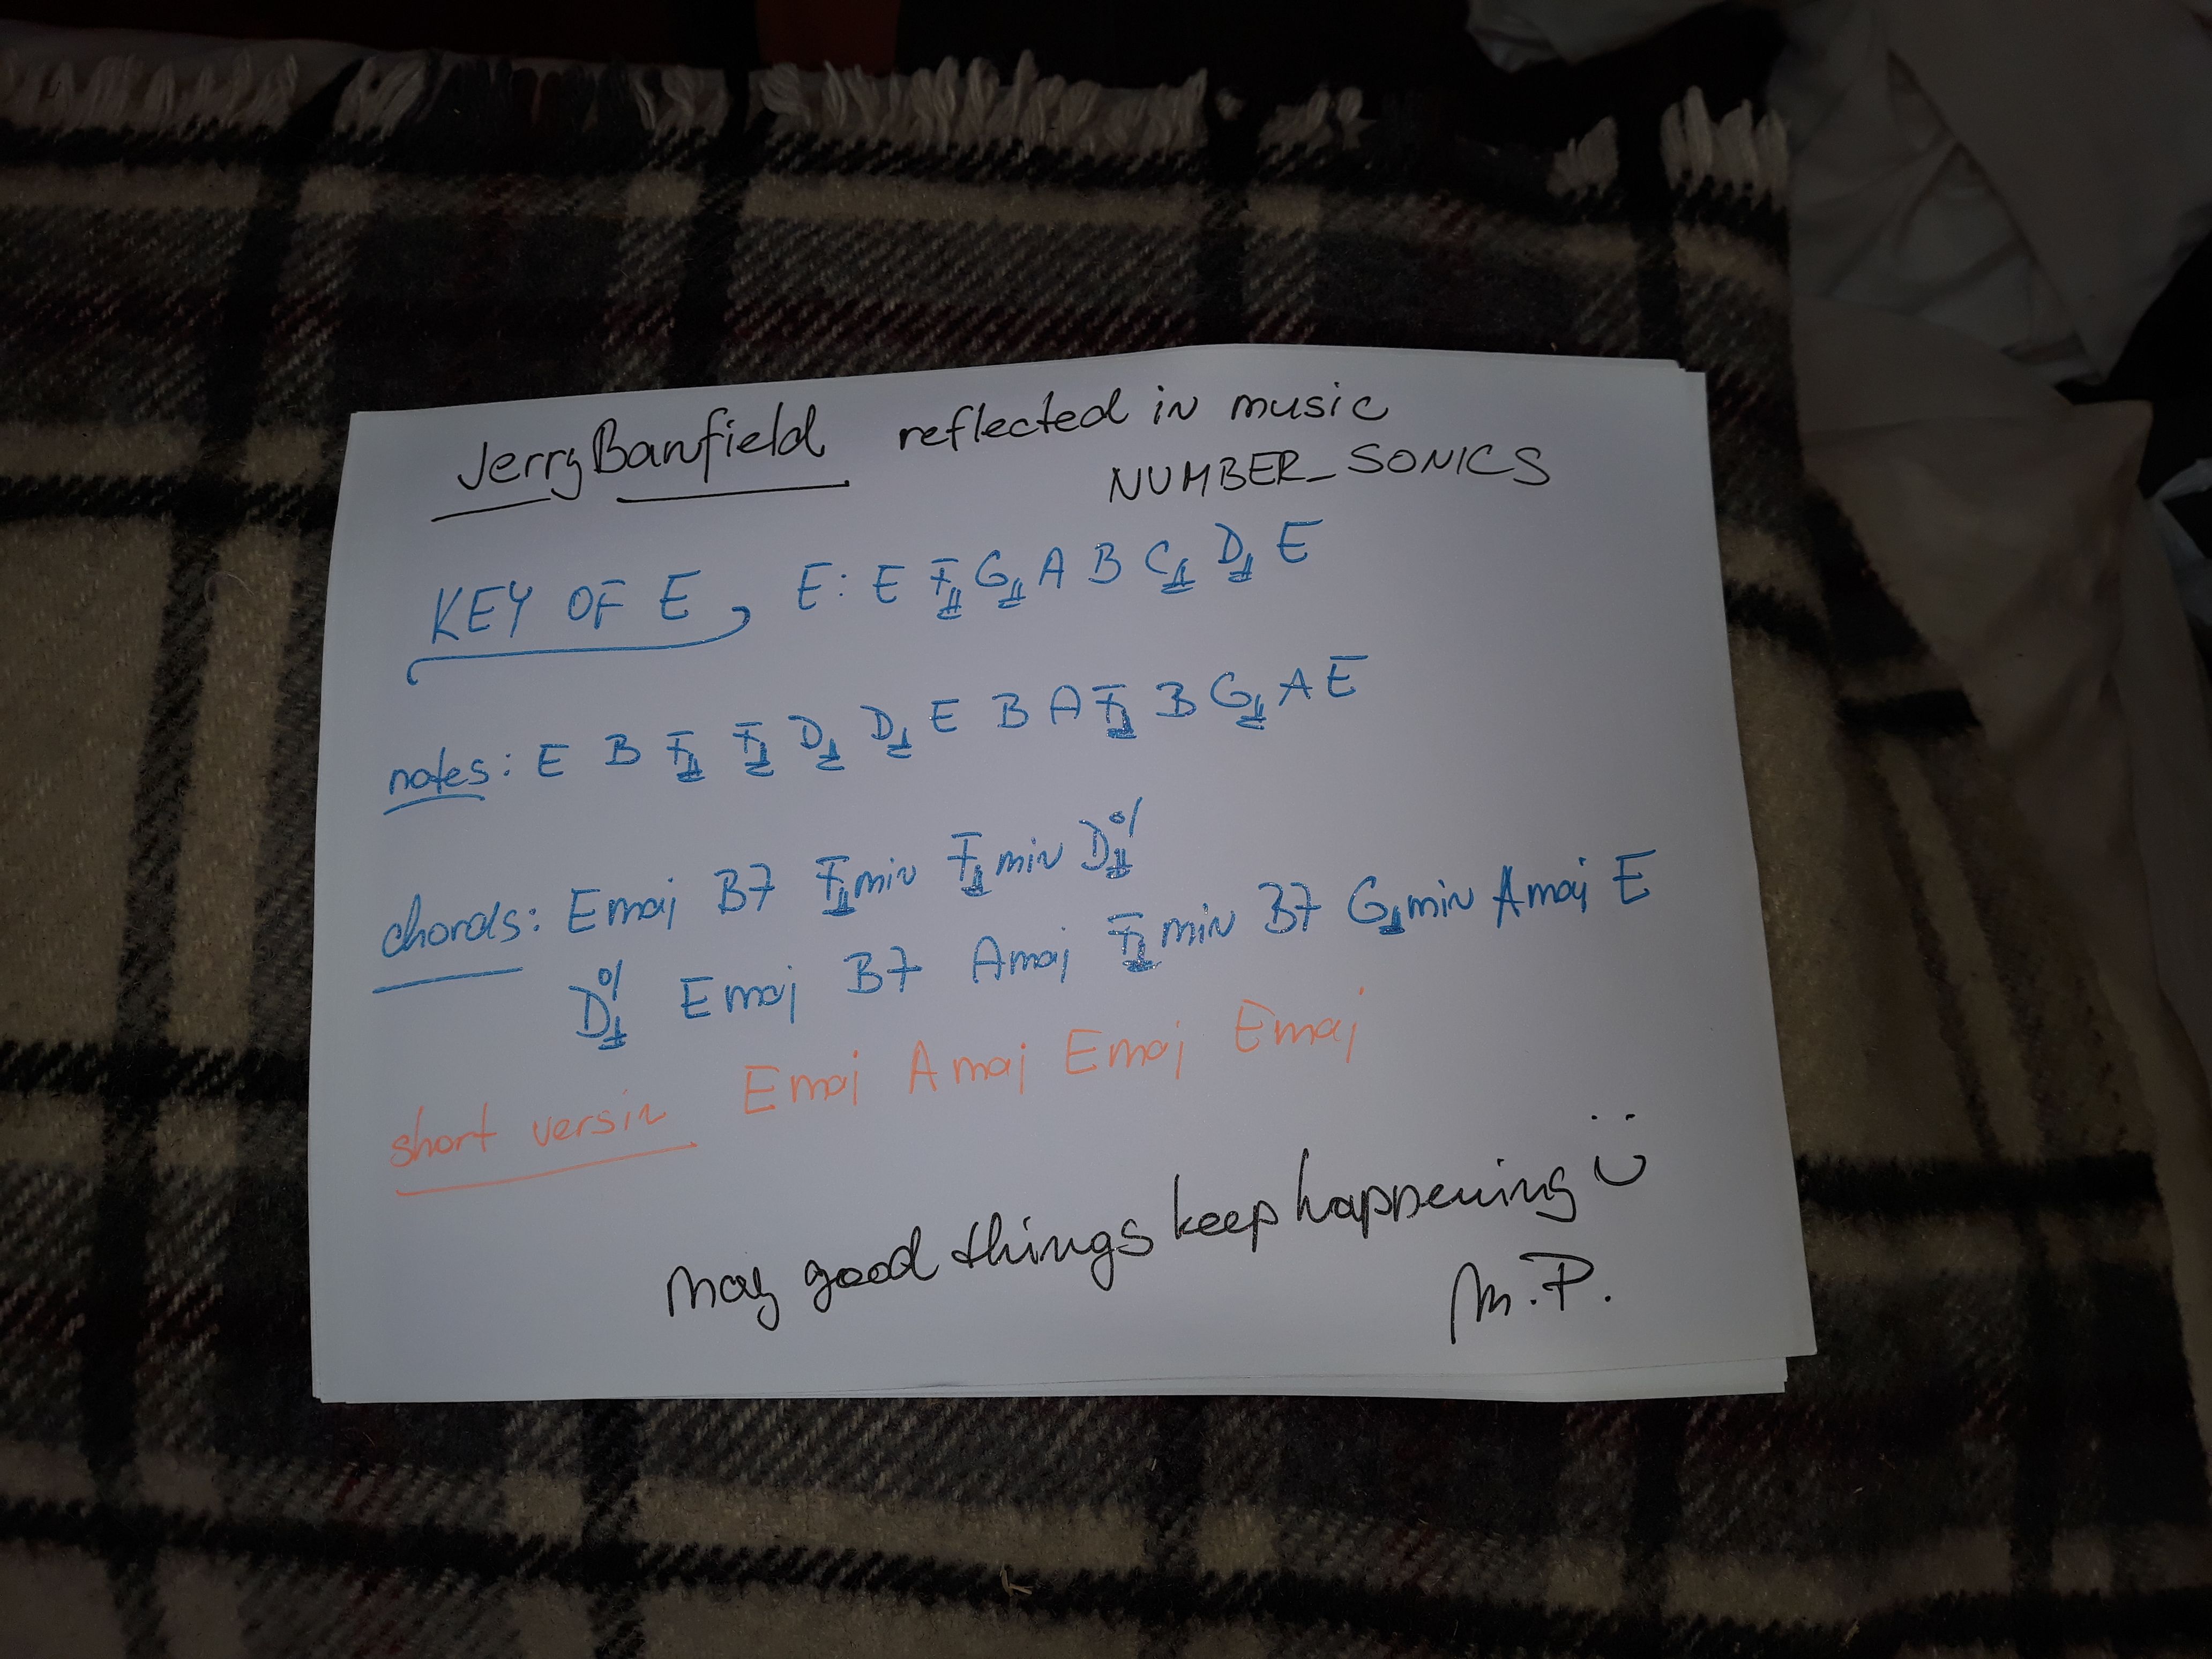 Jerry Banfield reflected in music
NUMBER_SONICS
KEY OF E, E: E F# G# A B C# D# E
notes: E B F# F# D# D# E B A F# B G# A E
chords: Emaj B7 F#min F#min D#%
D#% Emaj B7 Amaj F#min B7 G#min Amaj E
short versin Emaj Amaj Emaj Emaj
may good things keep happening :)
M.P.